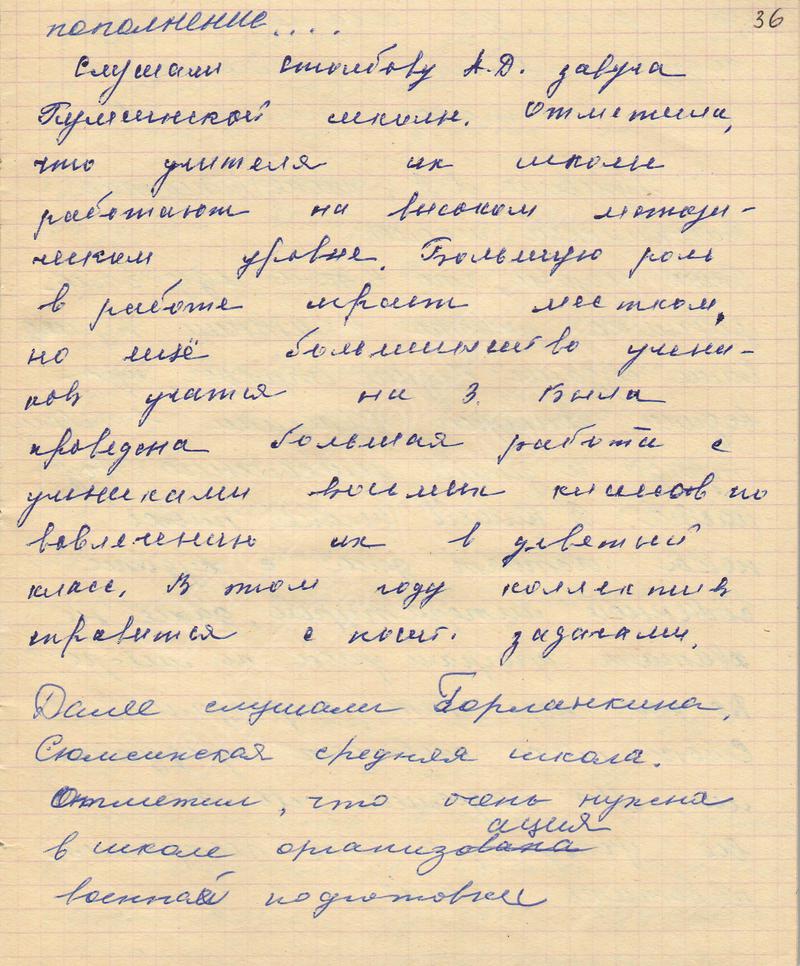 36
пополнение....
Слушали Столбову А.Д. завуча
Гуринской школы. Отметила,
что учителя их школы
работают на высоком методи-
ческом уровне. Большую роль
в работе играет местком,
но ещё большинство учени-
ков учатся на 3. Была
проведена большая работа с
учениками восьмых классов по
вовлечению их в девятый
класс. В этом году коллектив
справится с пост. задачами.
Далее слушали Горланкина,
Сюмсинская средняя школа.
Отметил, что очень нужна
ация
в школе организована
военной подготовки